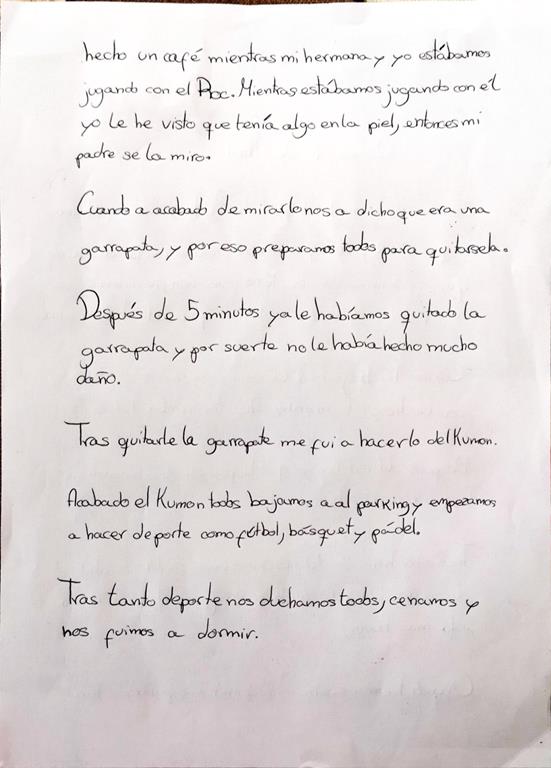 hecho un café mientras mi hermana y yo estábamos
jugando con el Roc. Mientras estábamos jugando con él
yo le he visto que tenía algo en la piel, entonces mi
padre se la miro.
Cuando a acabado de mirarlo nos a dicho que era una
garrapata, y por eso preparamos todos para quitarsela.
Después de 5 minutos ya le habíamos quitado la
garrapata y por suerte no le había hecho mucho
daño.
Tras quitarle la garrapate me fui a hacer lo del Kumon.
Acabado el Kumon todos bajamos a al parking y empezamos
a hacer deporte como fútbol, básquet y pádel.
Tras tanto deporte nos duchamos todos, cenamos y
nos fuimos a dormir.